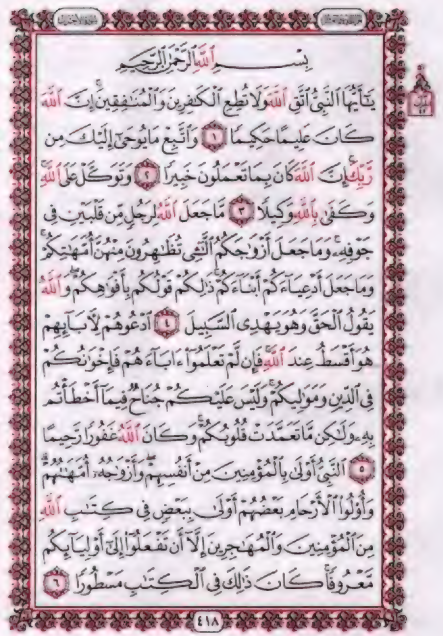 بِسْمِ ٱللَّهِ ٱلرَّحْمَٰنِ ٱلرَّحِيمِ
يَٰٓأَيُّهَا ٱلنَّبِىُّ ٱتَّقِ ٱللَّهَ وَلَا تُطِعِ ٱلْكَٰفِرِينَ وَٱلْمُنَٰفِقِينَ إِنَّ ٱللَّهَ
كَانَ عَلِيمًا حَكِيمًا ١ وَٱتَّبِعْ مَا يُوحَىٰٓ إِلَيْكَ مِن
رَّبِّكَ إِنَّ ٱللَّهَ كَانَ بِمَا تَعْمَلُونَ خَبِيرًا ٢ وَتَوَكَّلْ عَلَى ٱللَّهِ
وَكَفَىٰ بِٱللَّهِ وَكِيلًا ٣ مَّا جَعَلَ ٱللَّهُ لِرَجُلٍ مِّن قَلْبَيْنِ فِى
جَوْفِهِۦ وَمَا جَعَلَ أَزْوَٰجَكُمُ ٱلَّٰٓـِٔى تُظَٰهِرُونَ مِنْهُنَّ أُمَّهَٰتِكُمْ
وَمَا جَعَلَ أَدْعِيَآءَكُمْ أَبْنَآءَكُمْ ذَٰلِكُمْ قَوْلُكُم بِأَفْوَٰهِكُمْ وَٱللَّهُ
يَقُولُ ٱلْحَقَّ وَهُوَ يَهْدِى ٱلسَّبِيلَ ٤ ٱدْعُوهُمْ لِءَابَآئِهِمْ
هُوَ أَقْسَطُ عِندَ ٱللَّهِ فَإِن لَّمْ تَعْلَمُوٓا۟ ءَابَآءَهُمْ فَإِخْوَٰنُكُمْ
فِى ٱلدِّينِ وَمَوَٰلِيكُمْ وَلَيْسَ عَلَيْكُمْ جُنَاحٌ فِيمَآ أَخْطَأْتُم
بِهِۦ وَلَٰكِن مَّا تَعَمَّدَتْ قُلُوبُكُمْ وَكَانَ ٱللَّهُ غَفُورًا رَّحِيمًا
٥ ٱلنَّبِىُّ أَوْلَىٰ بِٱلْمُؤْمِنِينَ مِنْ أَنفُسِهِمْ وَأَزْوَٰجُهُۥٓ أُمَّهَٰتُهُمْ
وَأُو۟لُوا۟ ٱلْأَرْحَامِ بَعْضُهُمْ أَوْلَىٰ بِبَعْضٍ فِى كِتَٰبِ ٱللَّهِ
مِنَ ٱلْمُؤْمِنِينَ وَٱلْمُهَٰجِرِينَ إِلَّآ أَن تَفْعَلُوٓا۟ إِلَىٰٓ أَوْلِيَآئِكُم
مَّعْرُوفًا كَانَ ذَٰلِكَ فِى ٱلْكِتَٰبِ مَسْطُورًا ٦
٤١٨